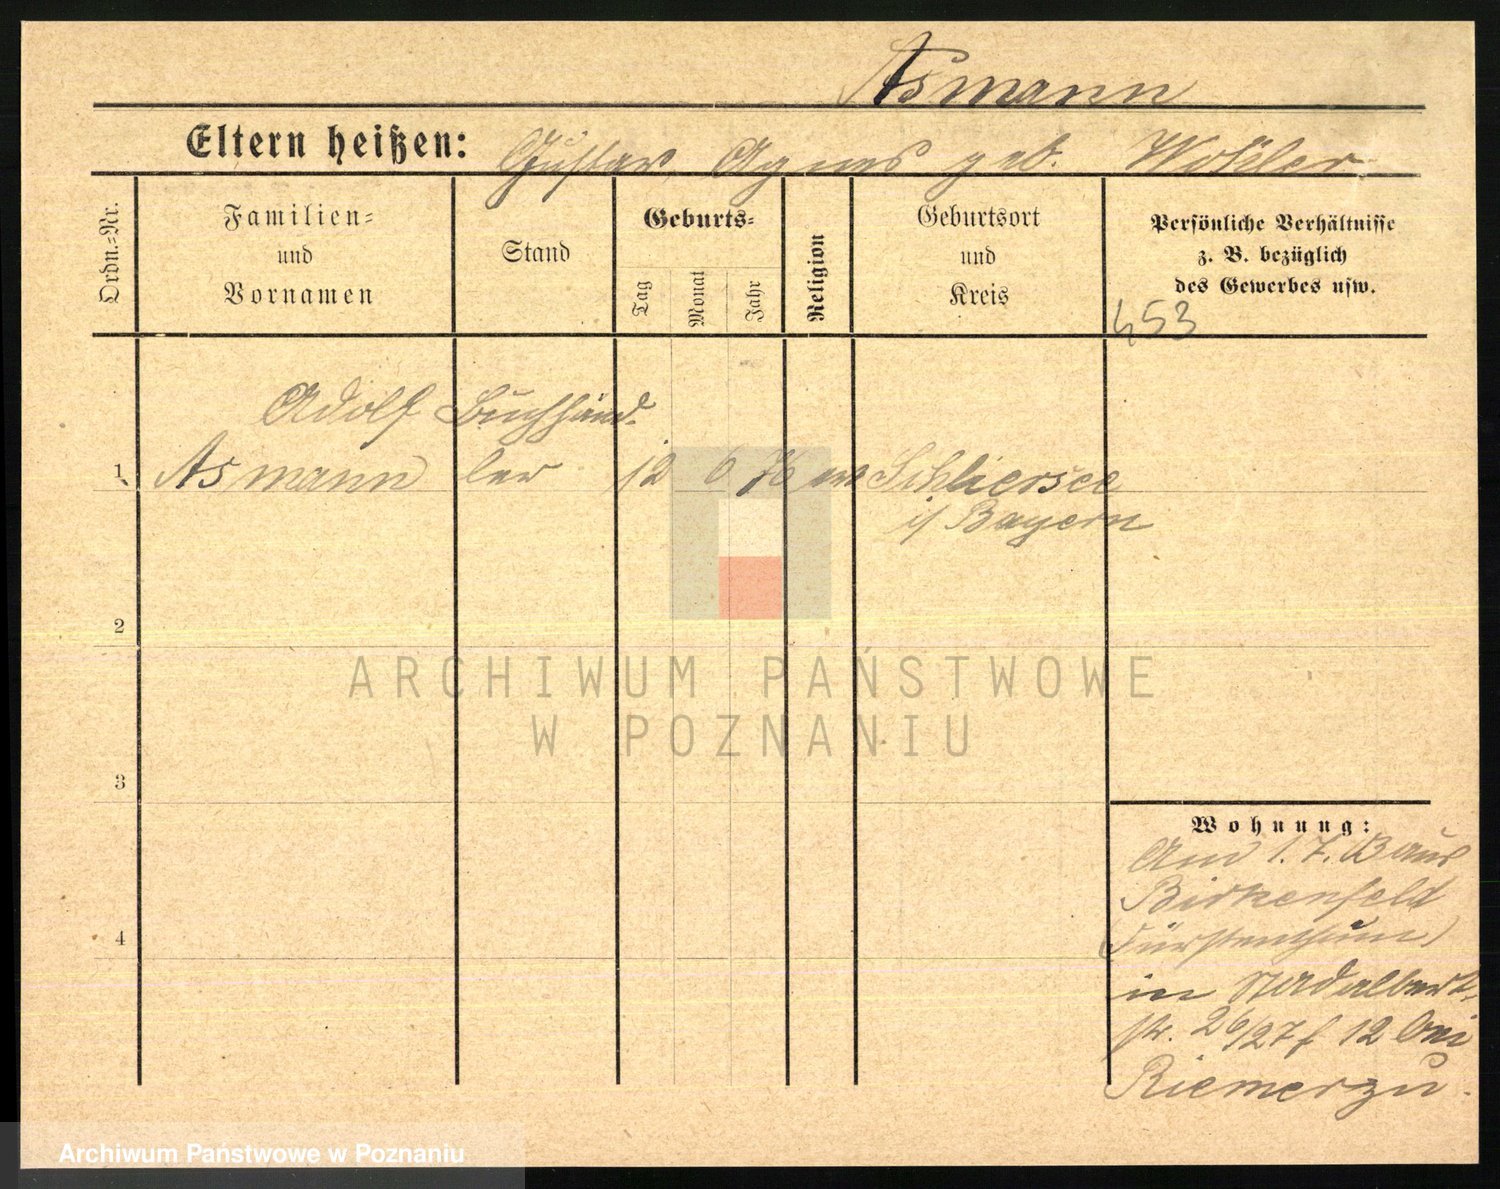 Asmann
Eltern heißen: Gustav, Agnes geb.
Ordn.-Nr.
Familien-
und
Vornamen
Stand
Geburts-
Tag
Monat
Jahr
Religion
Geburtsort
und
Kreis
Persönliche Verhältnisse
z. B. bezüglich
des Gewerbes usw.
453
Adolf Buchhänd-
1 Asmann ler 12 6 76 ev Schliersee
i/ Bayern
2
3
4
Wohnung:
Am 1. 7. 03 aus
Birkenfeld
Fürstenthum)
in St Adalbert-
str. 26/27 f 12 bei
Riemer zu.
ARCHIWUM PAŃSTWOWE
W POZNANIU
Archiwum Państwowe w Poznaniu